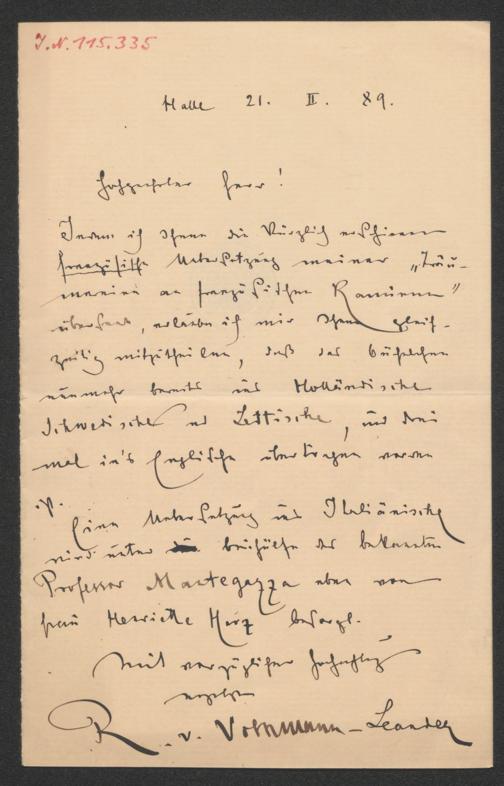 J.N. 115.335
Halle 21. II. 89.
Hochgeehrter Herr!
Indem ich Ihnen die kürzlich erschienene
französische Uebersetzung meiner „Träu-
mereien an französischen Kaminen"
übersende, erlaube ich mir Ihnen gleich-
zeitig mitzutheilen, daß das büchelchen
nunmehr bereits ins Holländische
Schwedische und Lettische, und drei
mal in's Englische übertragen worden
ist.
Eine Uebersetzung ins Italiänische
wird unter beihülfe des bekannten
Professor Mantegazza eben von
frau Henriette Herz besorgt.
Mit vorzüglicher Hochachtung
ergebenst
R. v. Volkmann-Leander